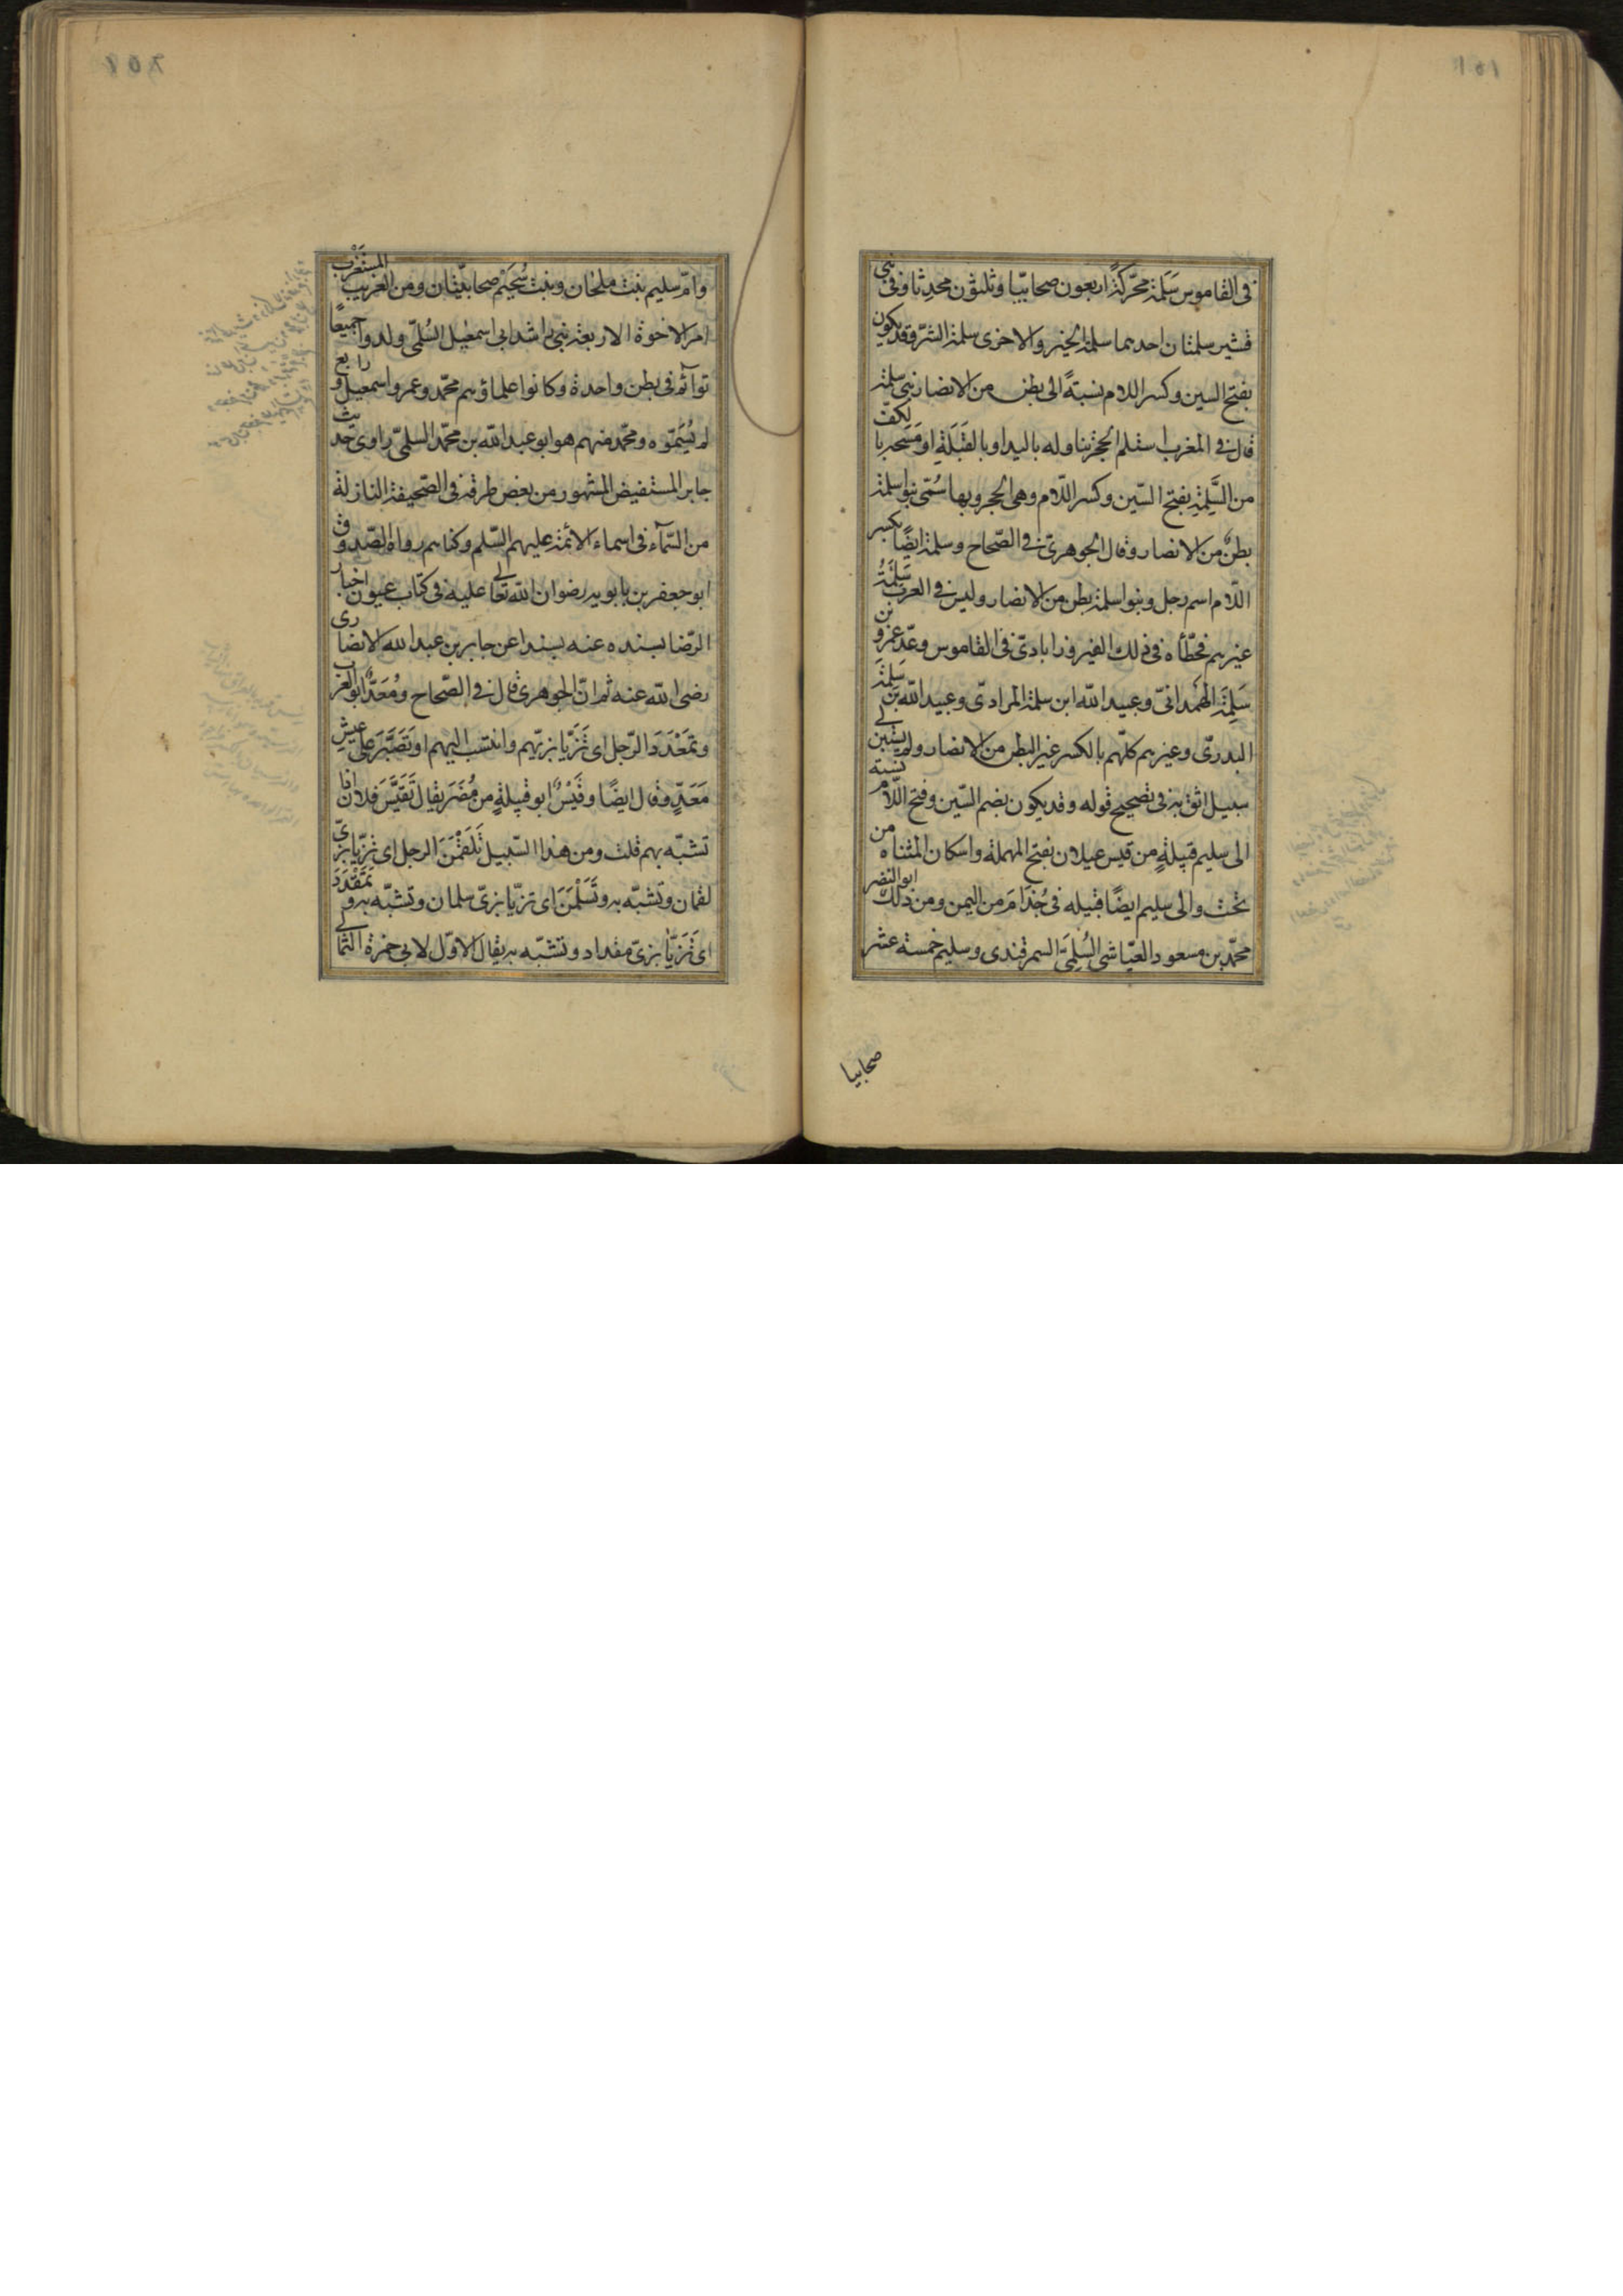 في القاموس سَلَمة محرّكةً اربعون صحابيّا وثلثون محدثا وفي بني
قشير سلمتان احدهما سلمة الخير والاخرى سلمة الشرّ وقد يكون
بفتح السين وكسر اللام نسبتةً الى بطن من الانصار بني سلمة
قال في المغرب استلم الحجر تناوله باليد او بالقبلة او مسحه بالكفّ
من السَّلِمَةِ بفتح السّين وكسر اللّام وهى الحجر وبها سُمّى بنو اسلمة
بطنٌ من الانصار وقال الجوهريّ في الصّحاح وسلمة ايضًا بكسر
اللّام اسم رجل وبنو اسلمة بطن من الانصار وليس في العرب سَلِمَةُ
غيرهم فخطّأه في ذلك الفيروزاباديّ في القاموس وعدّ عمرو بن
سَلِمَة الهمدانيّ وعبيد الله ابن سلمة المراديّ وعبيد الله بن سَلِمَة
البدريّ وغيرهم كلّهم بالكسر غير البطن من الانصار ولم يتبين لي
سبيل اثق به في تصحيح قوله وقد يكون بضم السّين وفتح اللّام نسبة
الى سليم قبيلةٍ من قيس عيلان بفتح المهملة واسكان المثناه من
تحت والى سليم ايضًا قبيله في جُذَامَ من اليمن ومن ذلك ابو النضر
محمّد بن مسعود العيّاشي السُلميّ السمرقندى وسليم خمسة عشر
صحابيا
وامّ سليم بنت ملحان وبنت سُحَيْم صحابيّتان ومن الغريب المستغرب
امر الاخوة الاربعة بني راشد ابي اسمعيل السُلميّ ولدوا جميعًا
توآئم في بطن واحدة وكانوا علماؤهم محمّد وعمر واسمعيل ورابع
لم يُسَمّوه ومحمّد منهم هو ابو عبد الله بن محمّد السلميّ راوى حديث
جابر المستفيض المشهور من بعض طرقه في الصّحيفة النازلة
من السّمآء في اسماء الائمة عليهم السّلم وكناهم رواه الصّدوق
ابو جعفر بن بابويه رضوان الله تعالى عليه في كتاب عيون اخبار
الرّضا بسنده عنه بسنده عن جابر بن عبد الله الانصارى
رضى الله عنه ثم انّ الجوهرى قال في الصّحاح ومَعَدٌّ ابو العرب
وتَمَعْدَدَ الرّجل اى تَزَيّا بزيّهم وانتسب اليهم او تَصَبَّرَ على عيش
مَعَدٍّ وقال ايضًا وقَيْسٌ ابو قبيلةٍ من مُضَر يقال تَقَيَّسَ فلان اذا
تشبّه بهم قلت ومن هذا السّبيل تَلَقْمَنَ الرجل اى تزيّا بزيّ
لقمان وتشبّه به وتَسَلْمَنَ اى تزيّا بزيّ سلمان وتشبّه به وتَمَقْدَدَ
اى تَزَيّا بزيّ مقداد وتشبّه به يقال الاوّل لابي حمزة الثمالي